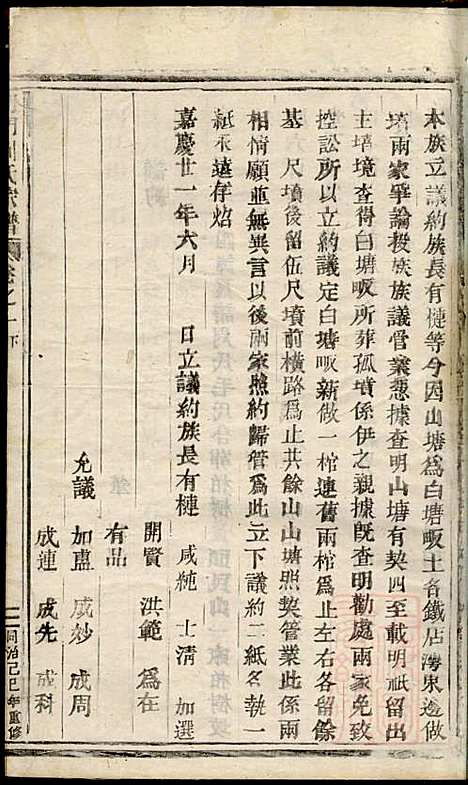 本族立議約族長有槤等今因山塘爲白塘畈土名鐵店灣東邊做
墳兩家爭論投族族議管業憑據查明山塘有契四至載明祇留出
主墳境查得白塘畈所葬孤墳係伊之親據旣查明勸處兩家免致
控訟所以立約議定白塘畈新做一棺連舊兩棺爲止共留餘
基　尺墳後留伍尺墳前横路爲止共餘山山塘照契管業此係兩
相情願並無異言以後兩家照約歸管爲此立下議約二紙各執一
紙永遠存炤
嘉慶廿一年六月　　日立議約族長有槤　咸純　士清　加選
開賢　洪範　爲在
有品
允議　加盡　成妙　成周
成連　成先　成科
劉氏宗譜　卷之一下
同治己巳年重修